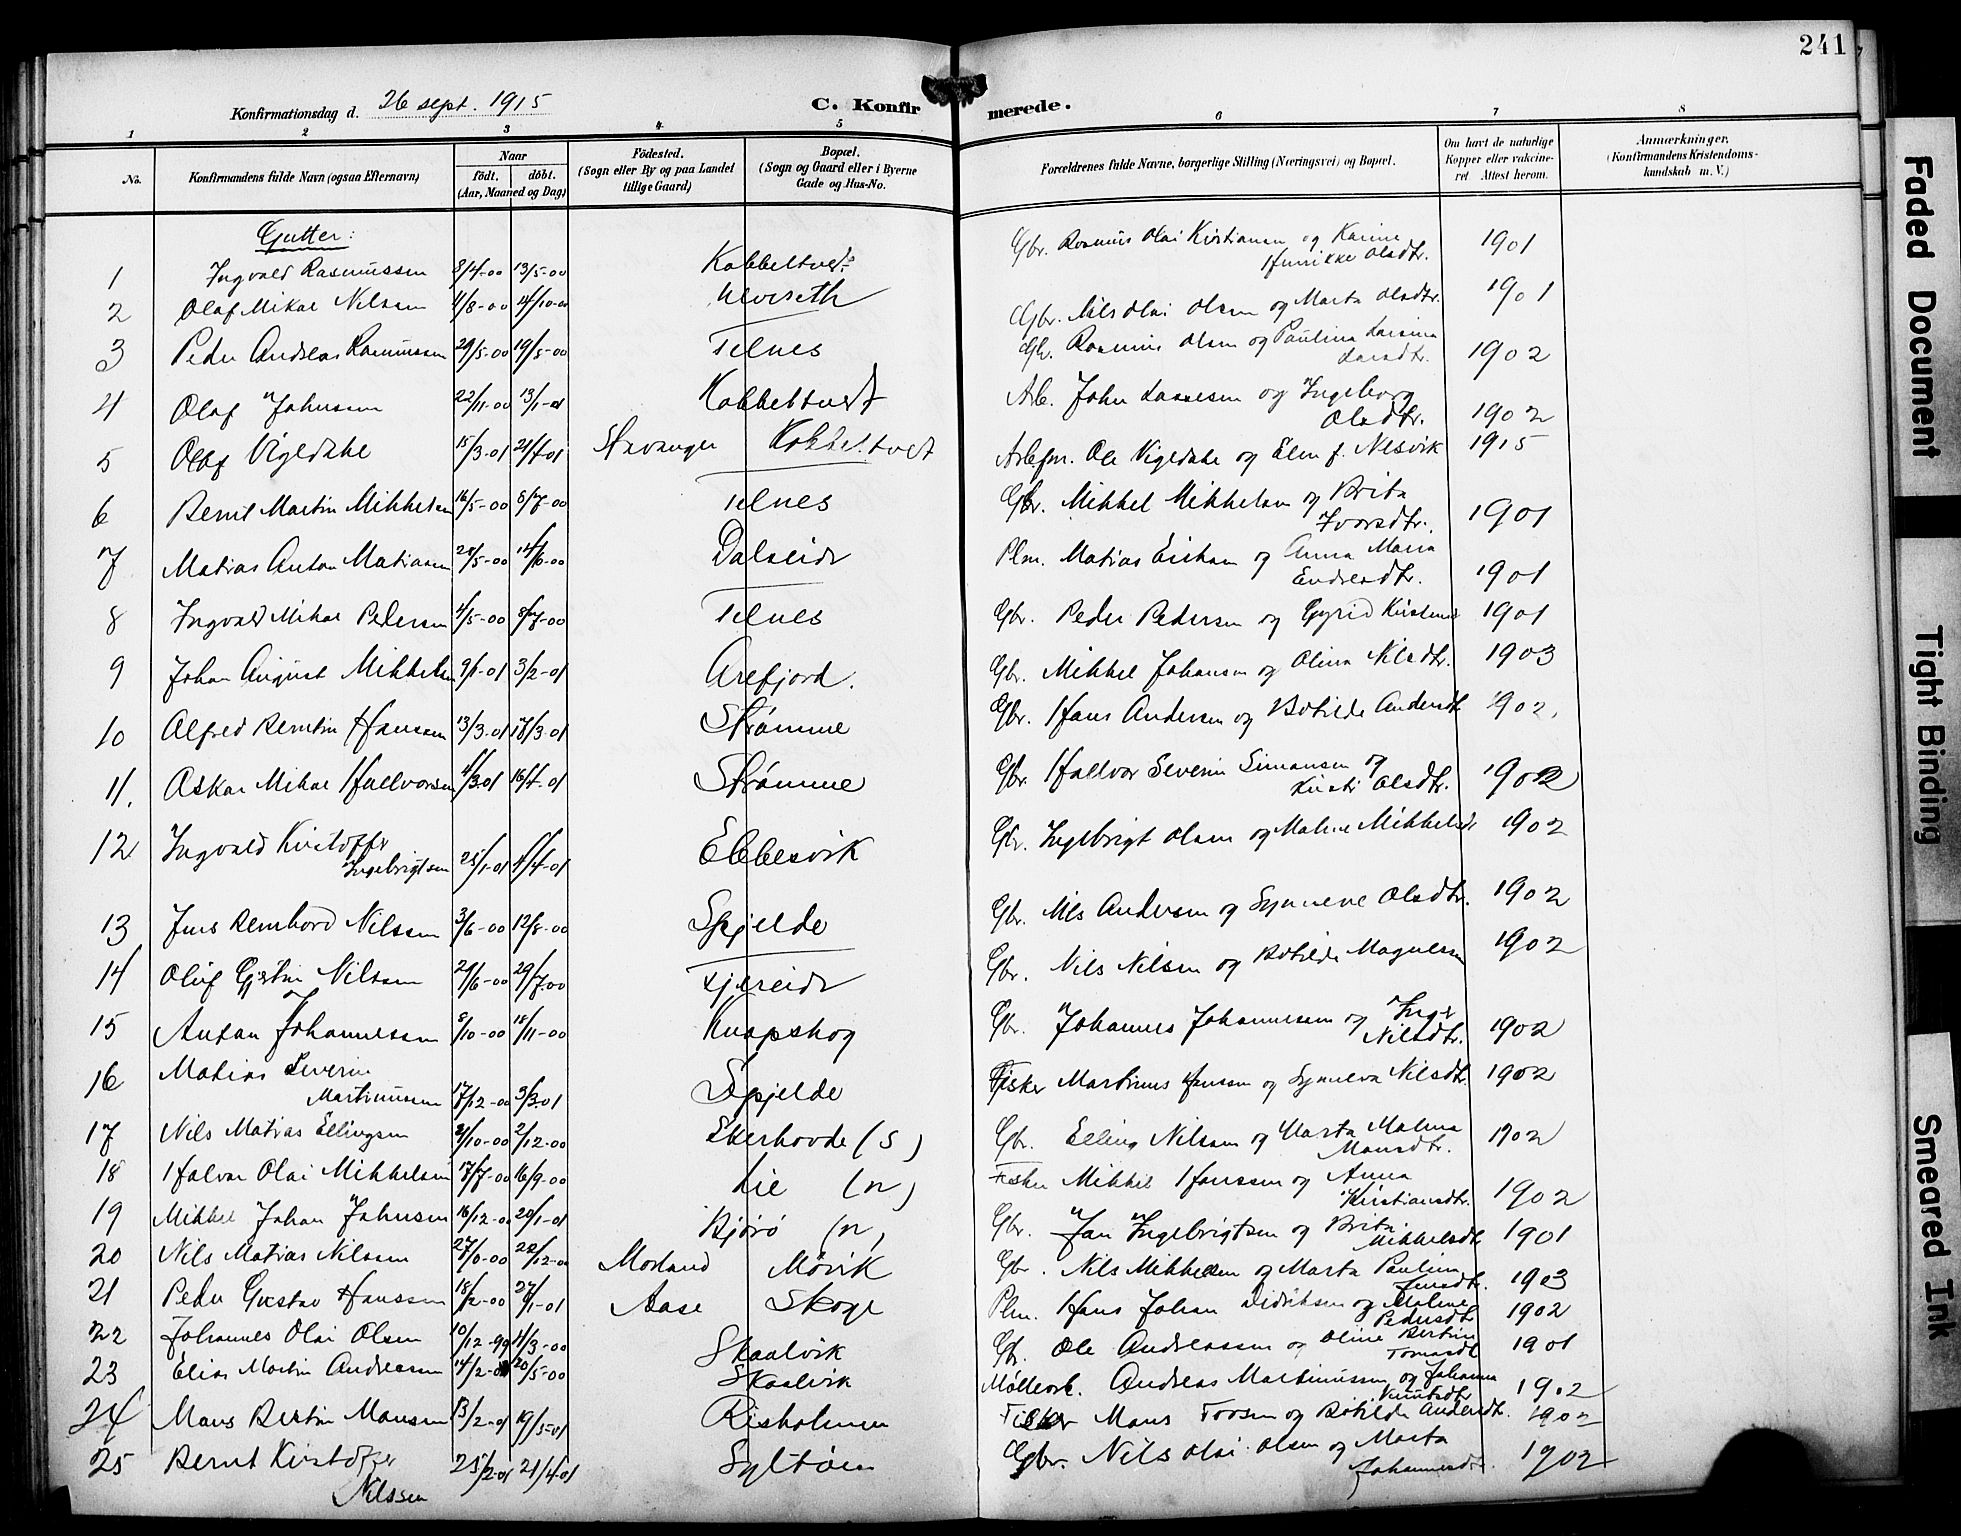 241
Konfirmationsdag d. 26 sept. 1915
C. Konfirmerede.
1 2 3 4 5 6 7 8
No.
Konfirmandens fulde Navn (ogsaa Efternavn)
Naar
födt. döbt.
(Aar, Maaned og Dag)
Födested.
(Sogn eller By og paa Landet tillige Gaard)
Bopæl.
(Sogn og Gaard eller i Byerne Gade og Hus-No.
Forældrenes fulde Navne, borgerlige Stilling (Næringsvei) og Bopæl.
Om havt de naturlige Kopper eller vakcineret Attest herom.
Anmærkninger.
(Konfirmandens Kristendomskundskab m. V.)
Gutter:
1 Ingvald Rasmussen 8/4-00 13/5-00 Kobbeltvedt Gbr. Rasmus Olai Kristiansen og Karine Henrikke Olsdtr. 1901
2 Olaf Mikal Nilsen 4/8-00 14/10-00 Ulveseth Gbr. Nils Olai Olsen og Marta Olsdtr. 1901
3 Peder Andreas Rasmussen 29/5-00 19/5-00 Telnes Gbr. Rasmus Olsen og Paulina Larsina Larsdtr. 1902
4 Olaf Johnsen 22/11-00 13/1-01 Kobbeltvedt Arb. John Lassesen og Ingeborg Olsdtr. 1902
5 Olaf Vigedahl 15/3-01 21/4-01 Stavanger Kobbeltvedt Arbfm. Ole Vigedahl og Elen f. Nesvik 1915
6 Bernt Martin Mikkelsen 16/5-00 8/7-00 Telnes Gbr. Mikkel Mikkelsen og Brita Ivarsdtr. 1901
7 Matias Anton Matiasen 28/5-00 14/6-00 Dalseide Plm. Matias Eriksen og Anna Maria Endresdtr. 1901
8 Ingvald Mikal Pedersen 4/5-00 8/7-00 Telnes Gbr. Peder Pedersen og Gyrid Kristens 1901
9 Johan August Mikkelsen 9/1-01 3/2-01 Arefjord. Gbr. Mikkel Johansen og Olina Nilsdtr. 1903
10 Alfred Berntin Hanssen 13/3-01 17/3-01 Strømme Gbr. Hans Andersen og Botilde Andersdt 1902.
11. Oskar Mikal Hallvorsen 4/3-01 16/4-01 Strømme Gbr. Hallvor Severin Simonsen og Kirsti Olsdtr. 1902
12 Ingvald Kristoffer Ingebrigtsen 25/1-01 4/4-01 Ebbesvik Gbr. Ingebrigt Olsen og Malene Mikkelsdt 1902
13 Jens Bernhard Nilssen 3/6-00 12/8-00 Spjelde Gbr. Nils Andersen og Synneve Olsdtr. 1902
14 Oluf Gjertin Nilssen 29/6-00 29/7-00 Fjereide Gbr. Nils Nilsen og Botilde Magnesen 1902
15 Anton Johannessen 8/10-00 18/11-00 Knapskog Gbr. Johannes Johannessen og Inger Nilsdtr. 1902
16 Matias Severin Martinussen 17/12-00 3/3-01 Spjelde Fisker Martinus Hanssen og Synneva Nilsdtr 1902
17 Nils Matias Ellingsen 8/10-00 2/12-00 Ekerhovde (S) Gbr. Elling Nilssen og Marta Malena Monsdtr. 1902
18 Halvor Olai Mikkelsen 17/7-00 16/9-00 Lie (n) Fisker Mikkel Hanssen og Anna Kristiansdtr. 1902
19 Mikkel Johan Johnsen 16/12-00 20/1-01 Bjørø (n) Gbr. Jan Ingebrigtsen og Brita Mikkelsdtr 1901
20 Nils Matias Nilssen 27/10-00 22/12-00 Morland Møvik Gbr. Nils Mikkelsen og Marta Paulina Jensdtr. 1903
21 Peder Gustav Hanssen 18/12-00 27/1-01 Aase Skoge Plm. Hans Johan Didriksen og Malene Pedersdtr 1902
22 Johannes Olai Olsen 10/12-99 4/3-00 Skaalvik Gbr. Ole Andreassen og Oline Bertine Tomasdt 1901
23 Elias Martin Andreassen 14/2-00 20/5-00 Skaalvik Møllerarb. Andreas Martinussen og Johanna Knutsdtr 1902
24 Mons Bertin Monsen 13/2-01 19/5-01 Risholmen Fisker Mons Torsen og Botilde Andersdtr. 1902
25 Bernt Kristoffer Nilssen 25/2-01 21/4-01 Syltøen Gbr. Nils Olai Olsen og Marta Johannesdtr. 1902
Faded Document
Tight Binding
Smeared Ink